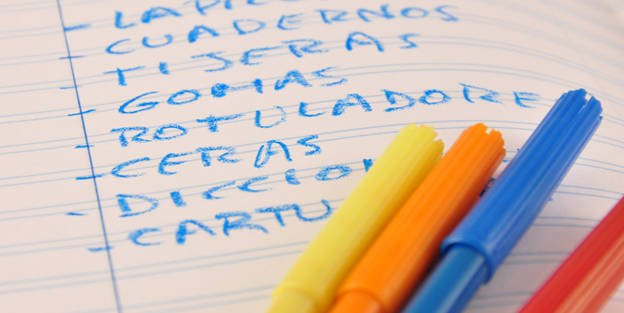 - LAPIC
- CUADERNOS
- TIJERAS
- GOMAS
- ROTULADORE
- CERAS
- DICCIO
- CARTU